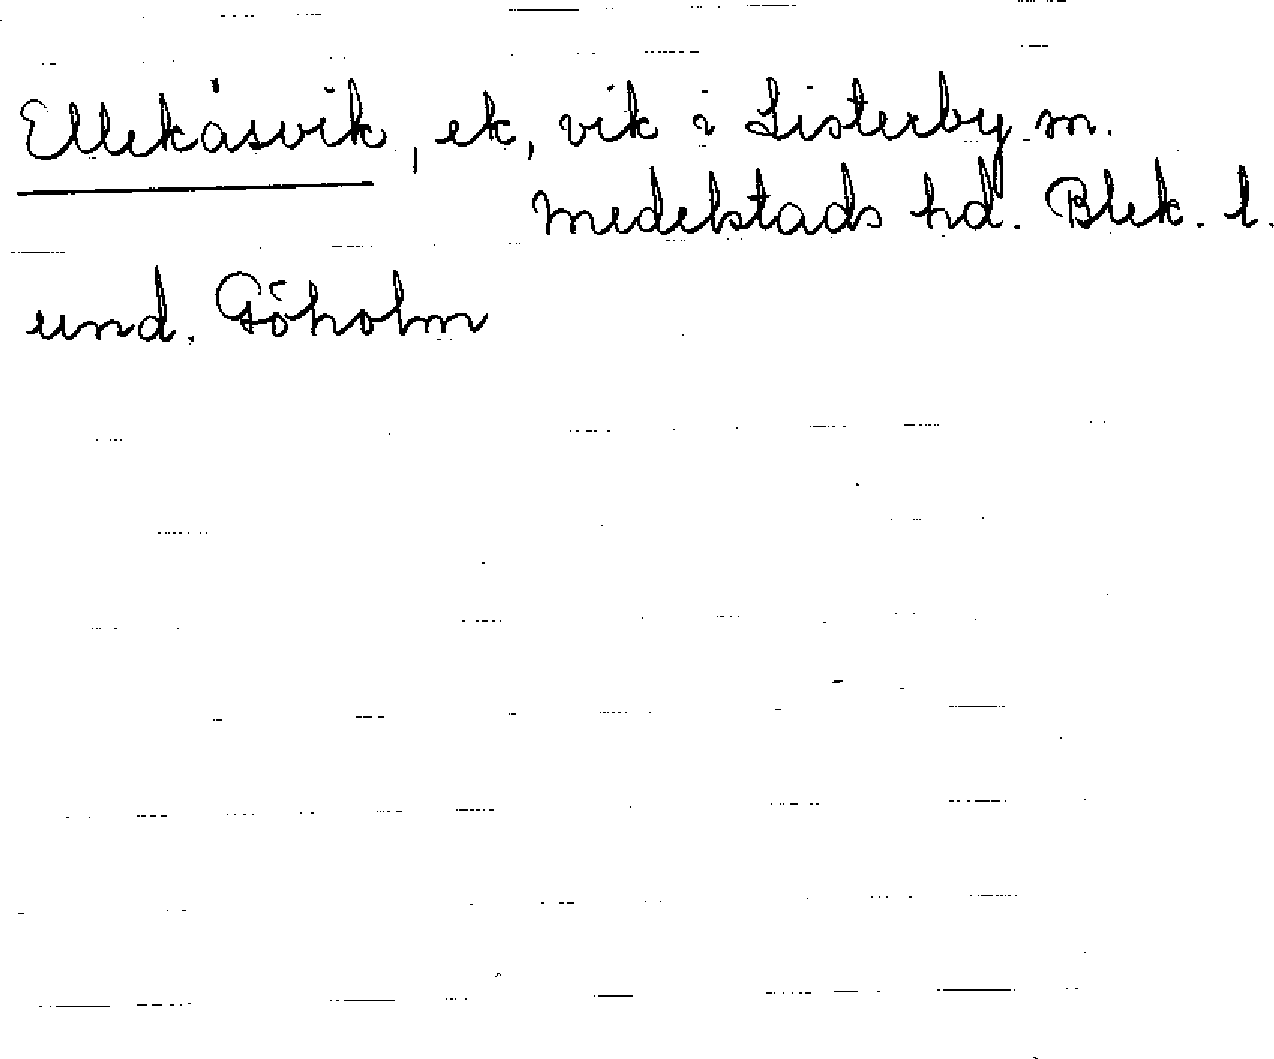 Ellekåsvik, ek, vik i Listerby sn.
Medelstads hd. Blek. l.
und. Göholm